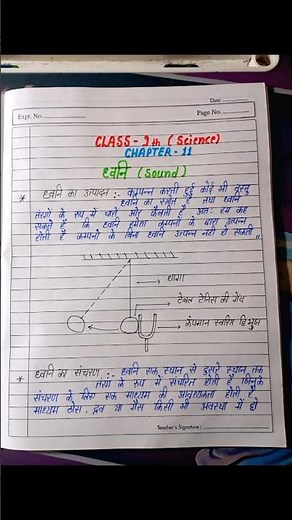 Date
Expt. No.
Page No.
CLASS - 9th (Science)
CHAPTER - 11
ध्वनि (Sound)
* ध्वनि का उत्पादन :- कम्पन्न करती हुई कोई भी वस्तु
ध्वनि का स्रोत है तथा ध्वनि
तरंगों के रूप में चारों ओर फैलती है अतः हम कह
सकते हैं कि ध्वनि हमेशा कम्पनों के द्वारा उत्पन्न
होती है कम्पनों के बिना ध्वनि उत्पन्न नहीं हो सकती।,
धागा
टेबल टेनिस की गेंद
कंपमान स्वरित्र द्विभुज
* ध्वनि का संचरण :- ध्वनि एक स्थान से दूसरे स्थान तक
तरंगों के रूप में संचरित होती है जिनके
संचरण के लिए एक माध्यम की आवश्यकता होती है
माध्यम ठोस, द्रव या गैस किसी भी अवस्था में हो
Teacher's Signature :